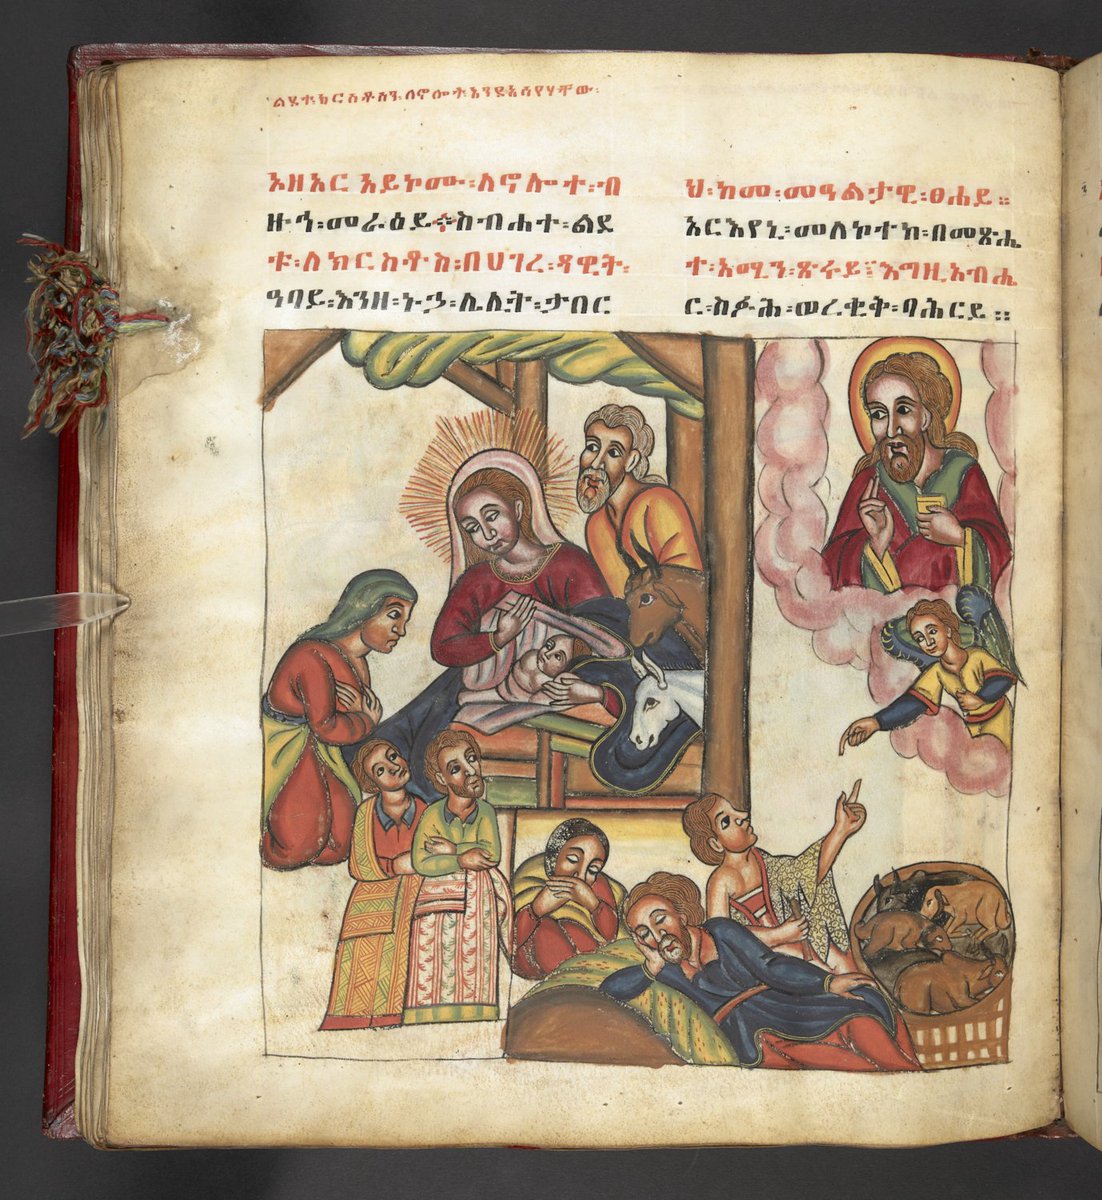 ልደተ፡ክርስቶስ፡ለኖሎት፡እንደአሳየሃቸው፡
አዘአር አይኮሙ፡ለኖሎተ፡ብ
ዙኅ፡መራዕይ፨ስብሐተ፡ልደ
ቱ፡ለክርስቶስ፡በሀገረ፡ዳዊት፡
ዓባይ፡እንዘ፡ኑኃ፡ሌሊት፡ታበር
ህ፡ከመ፡መዓልታዊ፡ፀሐይ።
አርእየኒ፡መለኮተከ፡በመጽሔ
ተ፡አሚን፡ጽሩይ፤እግዚአብሔ
ር፡ስፉሕ፡ወረቂቅ፡ባሕርይ።